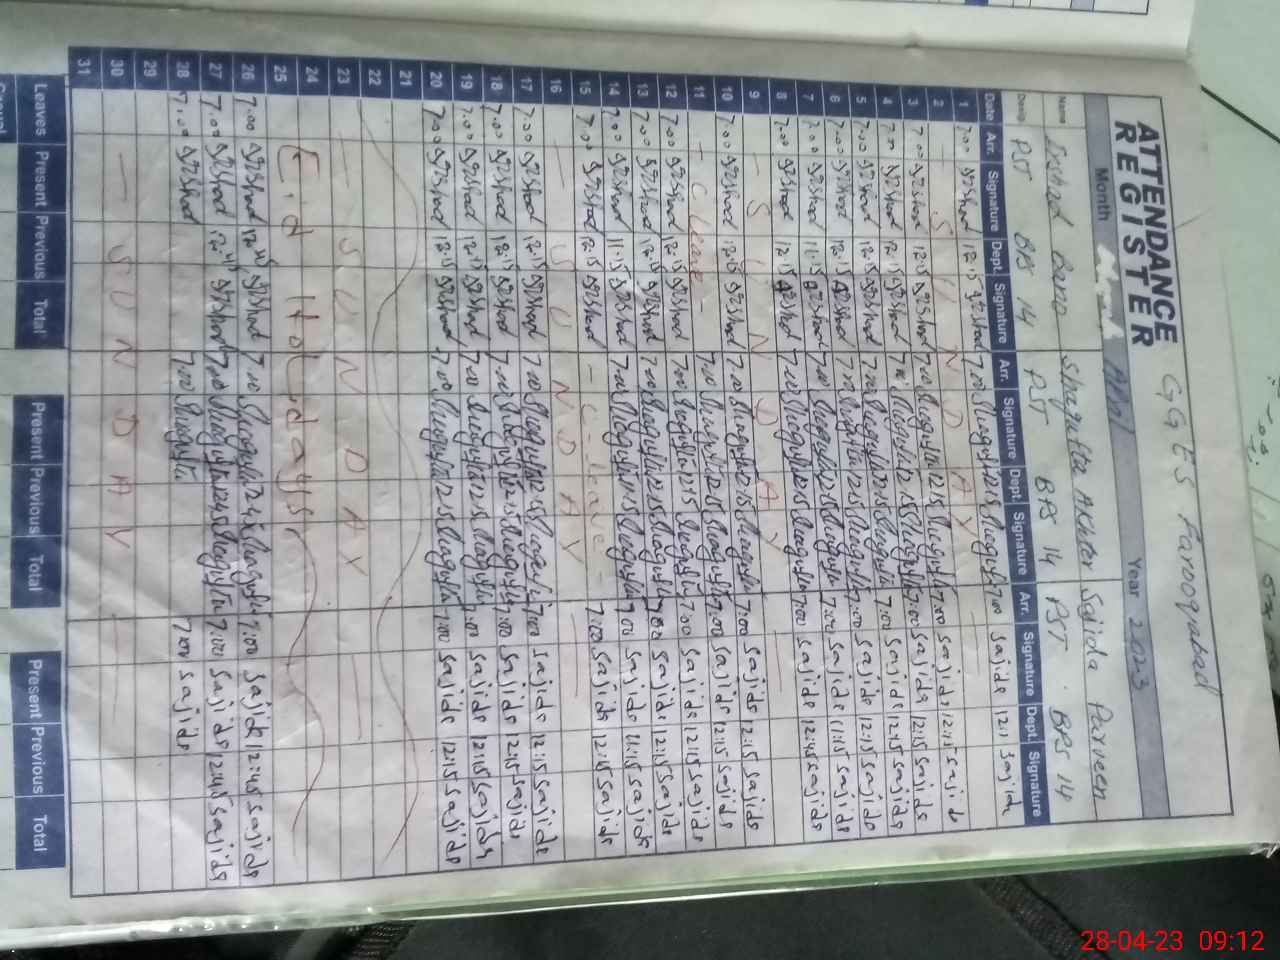 GGES Farooqabad
ATTENDANCE
REGISTER
Month April Year 2023
Name Irshad Bano Shagufta Akhter Sajida Parveen
Desig PST BPS 14 PST BPS 14 PST BPS 14
Date Arr. Signature Dept. Signature Arr. Signature Dept. Signature Arr. Signature Dept. Signature
1 7:00 Irshad 12:15 Irshad 7:00 Shagufta 12:15 Shagufta 7:00 Sajida Sajida
2 SUNDAY
3 7:00 Irshad 12:15 Irshad 7:00 Shagufta 12:15 Shagufta 7:00 Sajida 12:15 Sajida
4 7:00 Irshad 12:15 Irshad 7:00 Shagufta 12:15 Shagufta 7:00 Sajida 12:15 Sajida
5 7:00 Irshad 12:15 Irshad 7:00 Shagufta 12:15 Shagufta 7:00 Sajida 12:15 Sajida
6 7:00 Irshad 12:15 Irshad 7:00 Shagufta 12:15 Shagufta 7:00 Sajida Sajida
7 7:00 Irshad 11:15 Irshad 7:00 Shagufta Shagufta 7:00 Sajida 11:15 Sajida
8 7:00 Irshad 12:15 Irshad 7:00 Shagufta 12:15 Shagufta 7:00 Sajida 12:45 Sajida
9 SUNDAY
10 7:00 Irshad 12:15 Irshad 7:00 Shagufta 12:15 Shagufta 7:00 Sajida 12:15 Sajida
11 C leave 7:00 Shagufta 12:15 Shagufta 7:00 Sajida 12:15 Sajida
12 7:00 Irshad 12:15 Irshad 7:00 Shagufta 12:15 Shagufta 7:00 Sajida 12:15 Sajida
13 7:00 Irshad 12:15 Irshad 7:00 Shagufta 12:15 Shagufta 7:00 Sajida 12:15 Sajida
14 7:00 Irshad 11:15 Irshad 7:00 Shagufta 11:15 Shagufta 7:00 Sajida 11:15 Sajida
15 7:00 Irshad 12:15 Irshad C-leave 7:00 Sajida 12:15 Sajida
16 SUNDAY
17 7:00 Irshad 12:15 Irshad 7:00 Shagufta 12:15 Shagufta 7:00 Sajida 12:15 Sajida
18 7:00 Irshad 12:15 Irshad 7:00 Shagufta 12:15 Shagufta 7:00 Sajida 12:15 Sajida
19 7:00 Irshad 12:15 Irshad 7:00 Shagufta 12:15 Shagufta 7:00 Sajida 12:15 Sajida
20 7:00 Irshad 12:15 Irshad 7:00 Shagufta 12:15 Shagufta 7:00 Sajida 12:15 Sajida
21
22
23 SUNDAY
24 Eid Holidays
25
26 7:00 Irshad 12:45 Irshad 7:00 Shagufta 12:45 Shagufta 7:00 Sajida 12:45 Sajida
27 7:00 Irshad 12:45 Irshad 7:00 Shagufta 12:45 Shagufta 7:00 Sajida 12:45 Sajida
28 7:00 Irshad 7:00 Shagufta 7:00 Sajida
29
30 SUNDAY
31
Leaves Present Previous Total Present Previous Total Present Previous Total
28-04-23 09:12